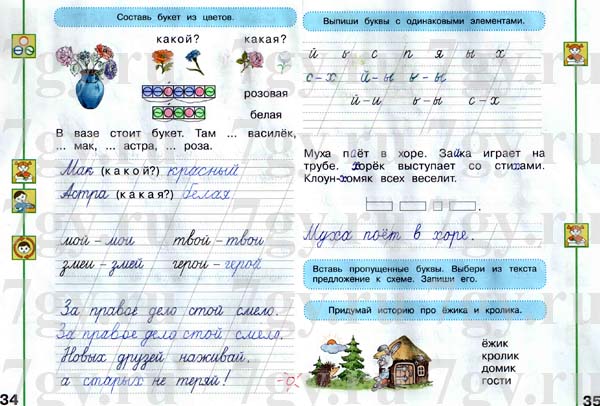 Составь букет из цветов.
какой? какая?
розовая
белая
В вазе стоит букет. Там ... василёк,
... мак, ... астра, ... роза.
Мак (какой?) красный
Астра (какая?) белая
мой – мои твой – твои
змеи – змей герои – герой
За правое дело стой смело.
За правое дело стой смело.
Новых друзей наживай,
а старых не теряй!
34
Выпиши буквы с одинаковыми элементами.
й ы с п я ы х
с-х й-ы ы-ы
й-и ы-ы с-х
Муха поёт в хоре. Зайка играет на
трубе. Хорёк выступает со стихами.
Клоун-хомяк всех веселит.
Муха поёт в хоре.
Вставь пропущенные буквы. Выбери из текста
предложение к схеме. Запиши его.
Придумай историю про ёжика и кролика.
ёжик
кролик
домик
гости
35
7gy.ru